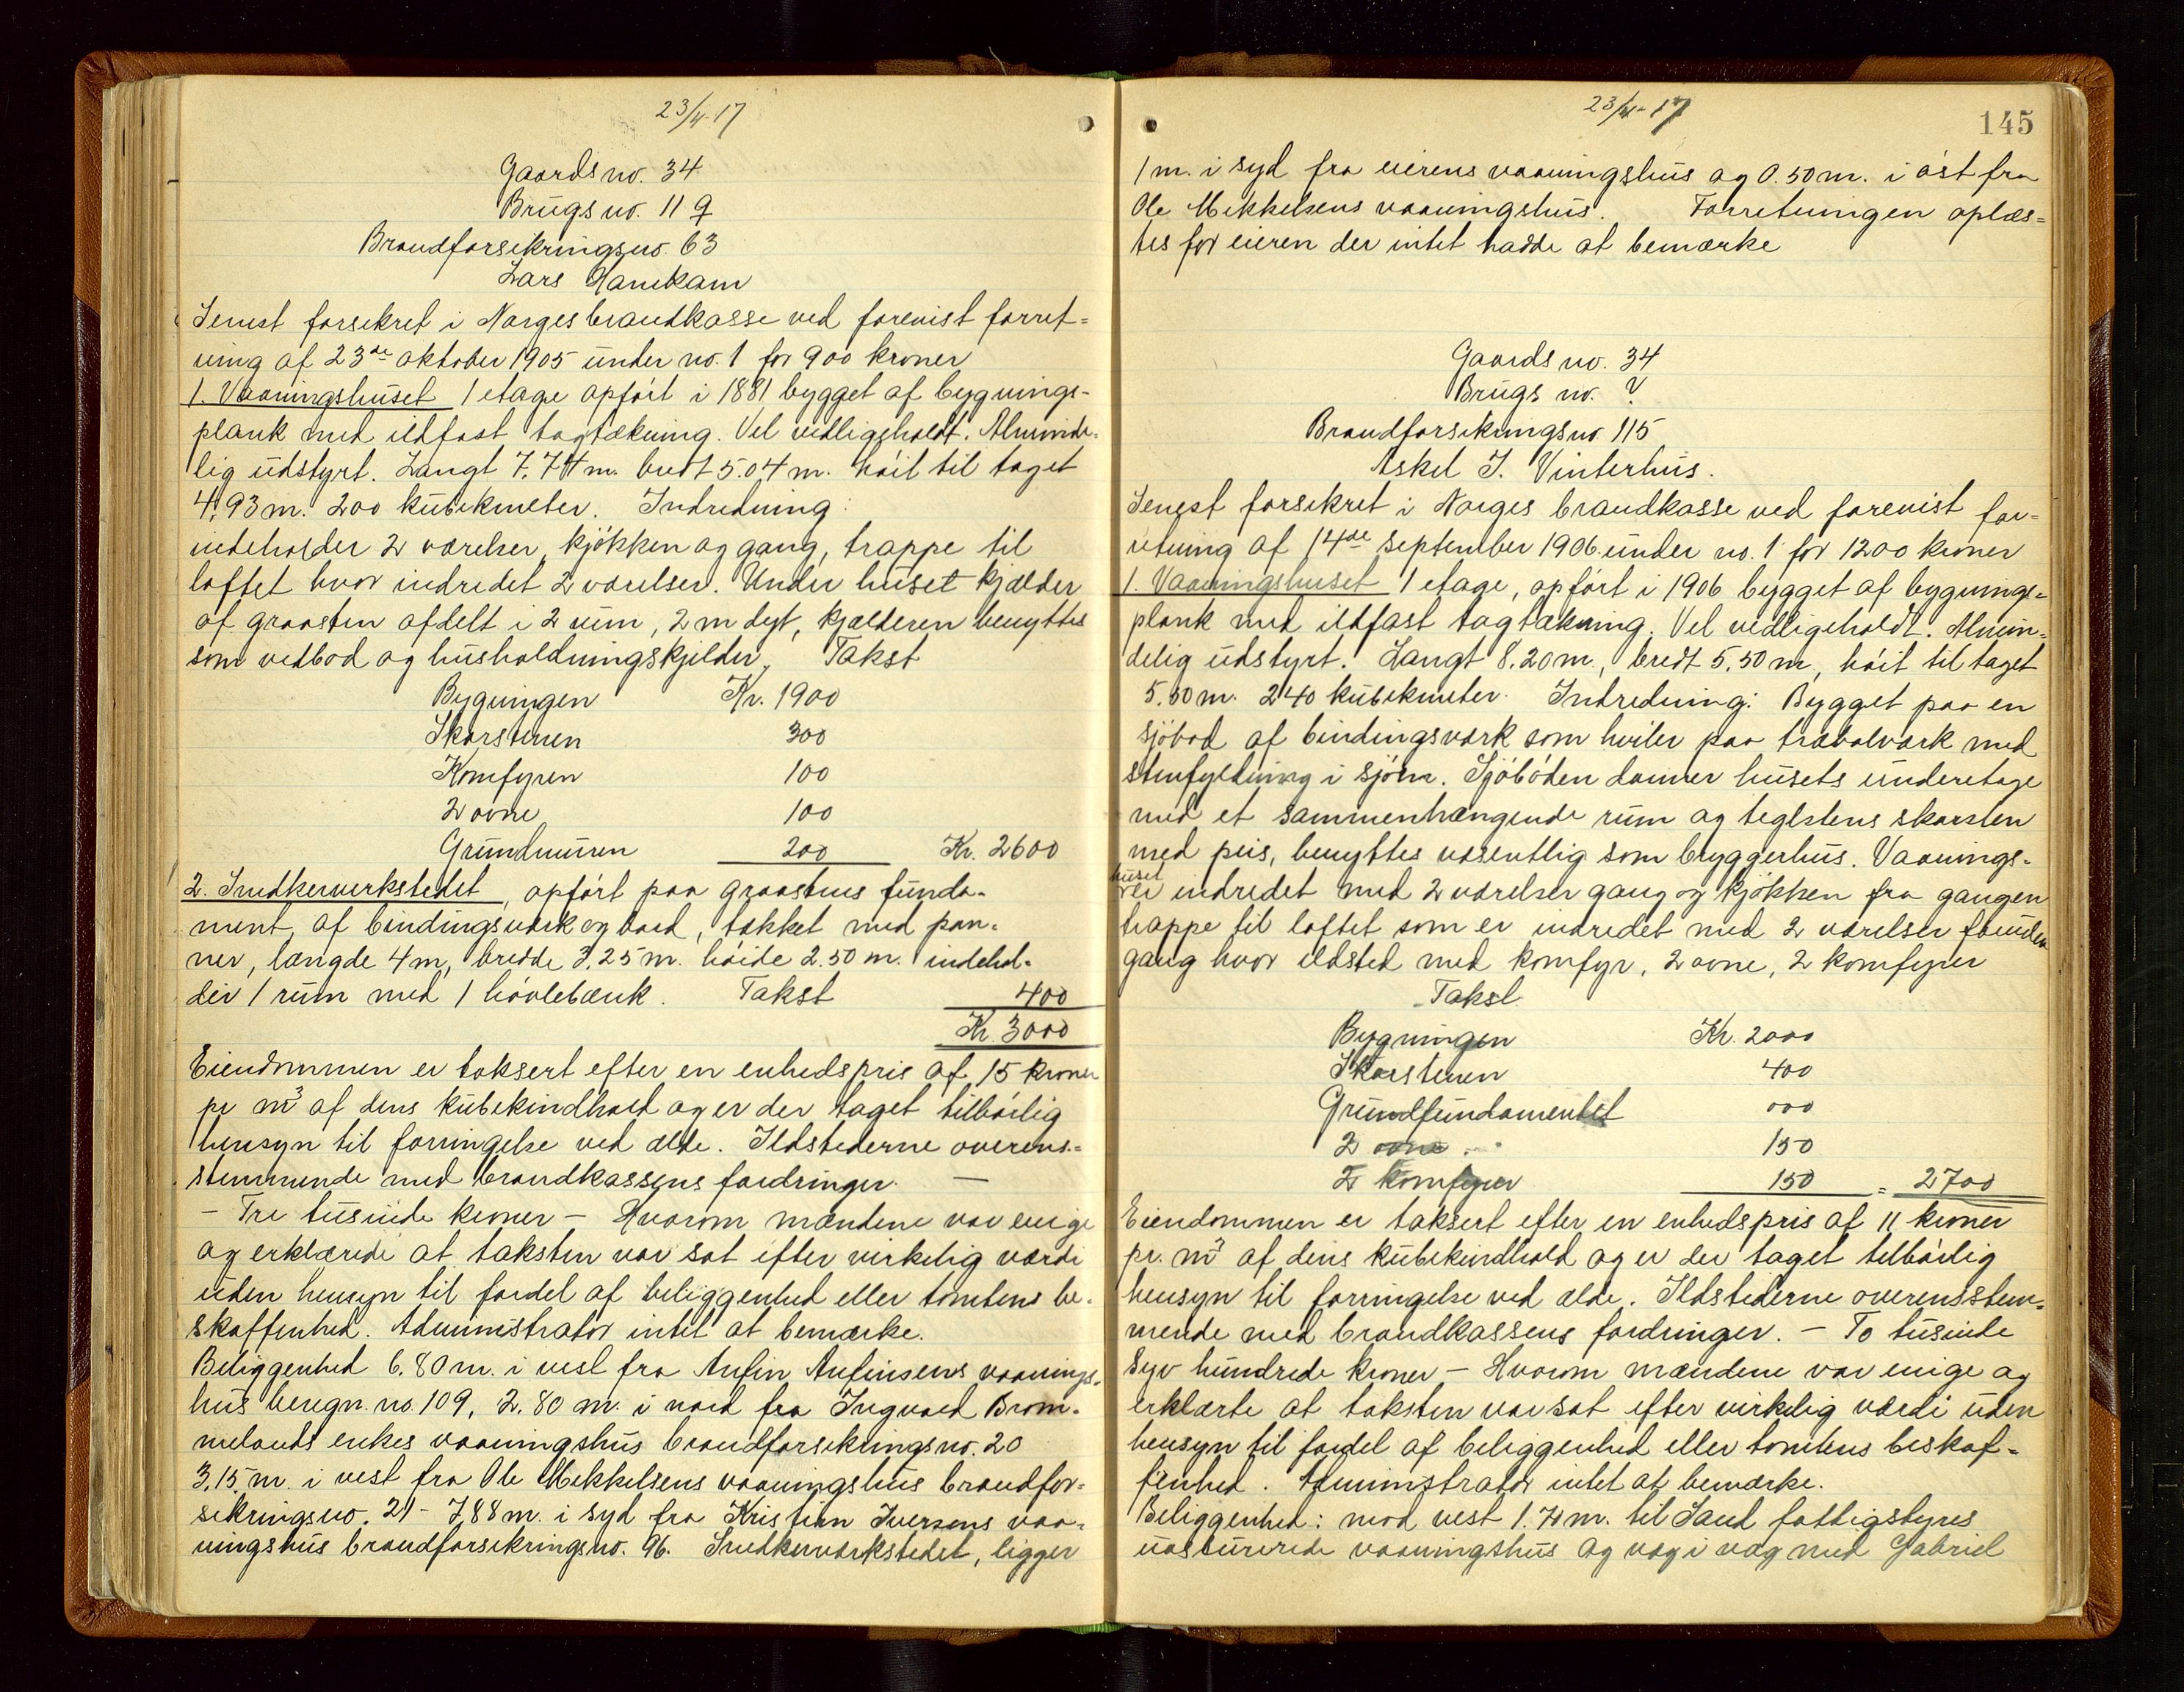 23/4-17
Gaards no. 34
Brugs no. 11 q
Brandforsikringsno. 63
Lars Hamekam
Senest forsikret i Norges brandkasse ved forevist forret-
ning af 23de oktober 1905 under no. 1 for 900 kroner
1. Vaaningshuset 1 etage opført i 1881 bygget af bygnings-
plank med ildfast tagtækning. Vel vedligeholdt. Alminde-
lig udstyrt. Langt 7.74 m. bredt 5.04 m. høit til taget
4,93 m. 200 kubikmeter. Indredning:
indeholder 2 værelser, kjøkken og gang, trappe til
loftet hvor indredet 2 værelser. Under huset kjælder
af graasten afdelt i 2 rum, 2 m dyt, kjælderen benyttes
som vedbod og husholdningskjelder. Takst
Bygningen Kr. 1900
Skorstenen 300
Komfyren 100
2 ovne 100
Grundmuren 200 Kr. 2600
2. Snedkerverkstedet, opført paa graastens funda-
ment, af bindingsværk og bord, tækket med pan-
ner, længde 4 m, bredde 3.25 m. høide 2.50 m. indehol-
der 1 rum med 1 høvlebænk. Takst 400
Kr. 3000
Eiendommen er taksert efter en enhedspris af 15 kroner
pr m3 af dens kubikindhold og er der taget tilbørlig
hensyn til forringelse ved ælde. Ildstederne overens-
stemmende med brandkassens fordringer. —
- Tre tusinde kroner - Hvorom mændene var enige
og erklærede at taksten var sat efter virkelig værdi
uden hensyn til fordel af beliggenhed eller tomtens be-
skaffenhed. Administrator intet at bemærke.
Beliggenhed 6.80 m. i vest fra Anfin Anfinsens vaanings-
hus beregn. no. 109, 2.80 m. i nord fra Ingvald Brom-
melands enkes vaaningshus brandforsikringsno. 20
3,15 m. i vest fra Ole Mekkelsens vaaningshus brandfor-
sikringsno. 21 - 7,88 m. i syd fra Kristian Iversens vaa-
ningshus brandforsikringsno. 96. Snedkerværkstedet, ligger
23/4-17
145
1 m. i syd fra eierens vaaningshus og 0.50 m. i øst fra
Ole Mekkelsens vaaningshus. Forretningen oplæs-
tes for eieren der intet hadde at bemærke
Gaards no. 34
Brugs no. ?
Brandforsikringsno. 115
Askel I. Vinterhus.
Senest forsikret i Norges brandkasse ved forevist for-
retning af 14de september 1906 under no. 1 for 1200 kroner
1. Vaaningshuset 1 etage, opført i 1906 bygget af bygnings-
plank med ildfast tagtækning. Vel vedligeholdt. Almin-
delig udstyrt. Langt 8,20 m, bredt 5,50 m, høit til taget
5,50 m. 240 kubikmeter. Indredning: Bygget paa en
sjøbod af bindingsværk som hviler paa trævolværk med
stenfyldning i sjøen. Sjøboden danner husets underetage
med et sammenhængende rum og teglstens skorsten
med peis, benyttes væsentlig som bryggerhus. Vaanings-
huset er indredet med 2 værelser gang og kjøkken fra gangen
trappe til loftet som er indredet med 2 værelser foruden
gang hvor ildsted med komfyr, 2 ovne, 2 komfyrer
Takst
Bygningen Kr. 2000
Skorstenen 400
Grundfundamentet 000
2 ovne 150
2 komfyrer 150 = 2700
Eiendommen er taksert efter en enhedspris af 11 kroner
pr. m3 af dens kubikindhold og er der taget tilbørlig
hensyn til forringelse ved ælde. Ildstederne overensstem-
mende med brandkassens fordringer. - To tusinde
syv hundrede kroner - Hvorom mændene var enige og
erklærte at taksten var sat efter virkelig værdi uden
hensyn til fordel af beliggenhed eller tomtens beskaf-
fenhed. Administrator intet at bemærke.
Beliggenhed: mod vest 1.70 m. til Sand fattigstyres
uassurerede vaaningshus og væg i væg med Gabriel